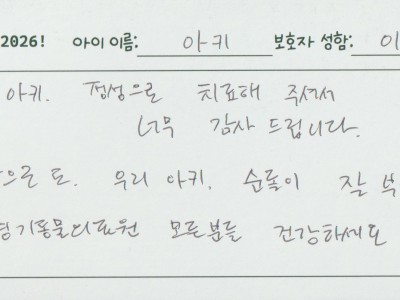 2026! 아이 이름: 아키 보호자 성함: 이
아키. 정성으로 치료해 주셔서
너무 감사 드립니다.
으로도. 우리 아키. 순돌이 잘 부
경기동물의료원 모든분들 건강하세요